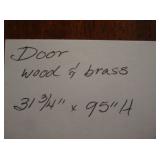 Door
wood & brass
31 3/4" x 95" H